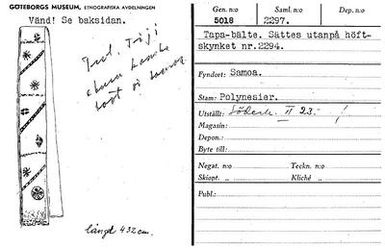 GÖTEBORGS MUSEUM, ETNOGRAFISKA AVDELNINGEN
Vänd! Se baksidan.
längd 432 cm.
Gen. n:o Saml. n:o Dep. n:o
5018 2297.
Tapa-bälte. Sättes utanpå höft-
skynket nr.2294.
Fyndort: Samoa.
Stam: Polynesier.
Utställt: Söderh. II 23.
Magasin:
Depon.:
Byte till:
Negat. n:o Teckn. n:o
Skiopt. „ Kliché „
Publ.: